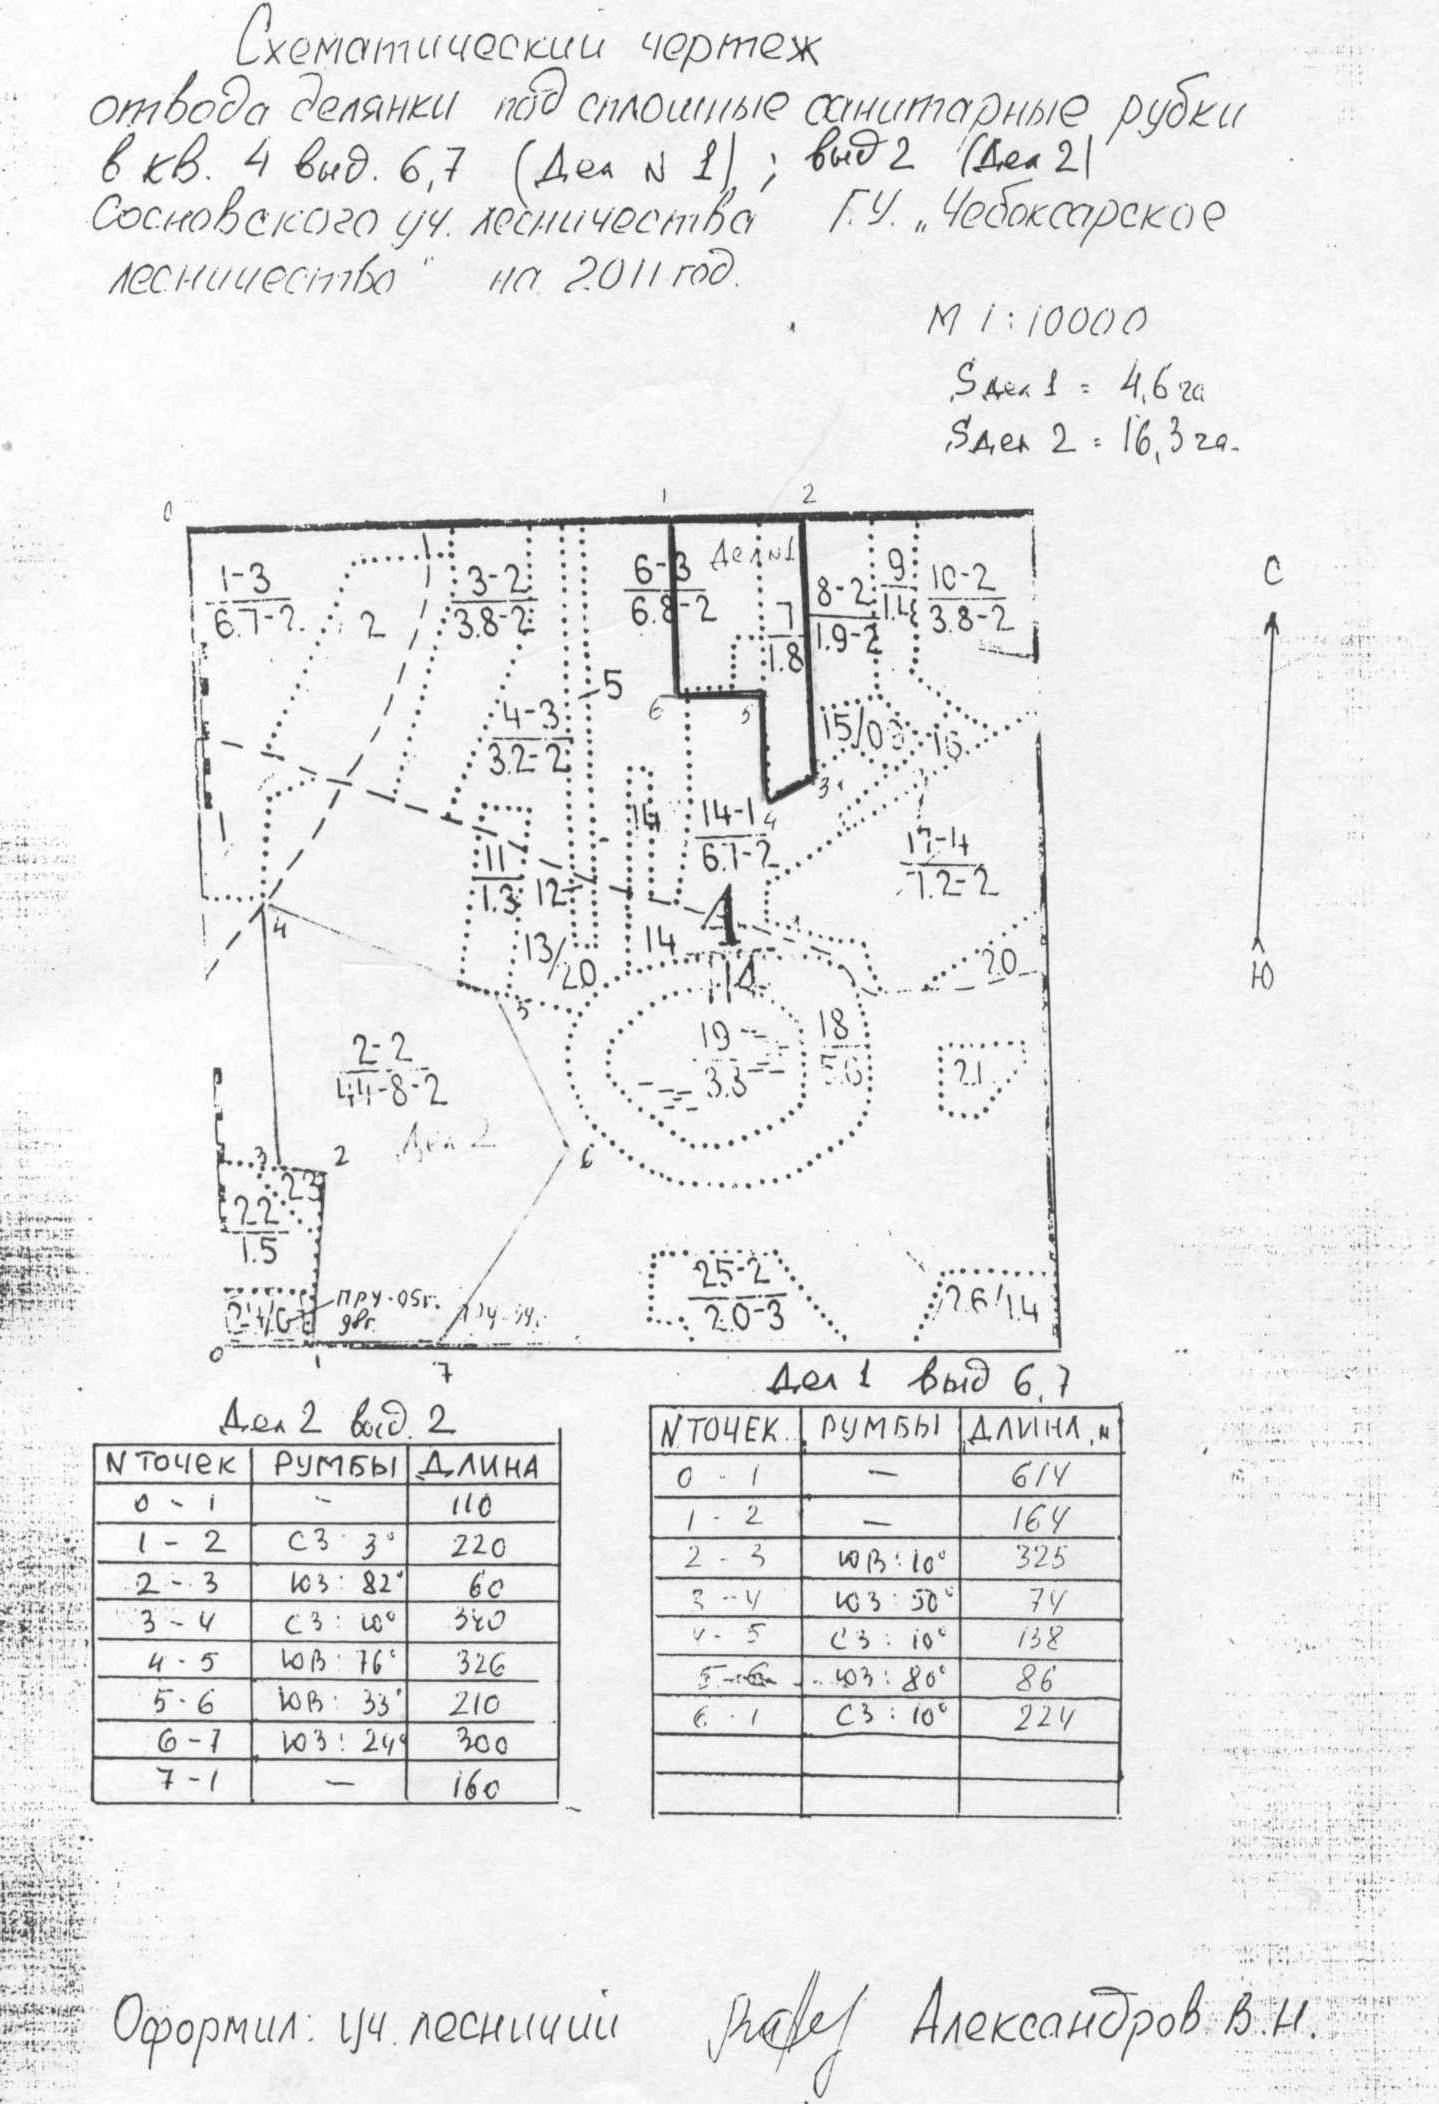 Схематический чертеж
отвода делянки под сплошные санитарные рубки
в кв. 4 выд. 6,7 (Дел N 1); выд 2 (Дел 2)
Сосновского уч. лесничества Г.У. „Чебоксарское
лесничество" на 2011 год.
М 1:10000
S дел 1 = 4,6 га
S дел 2 = 16,3 га.
0 1 2
Дел N1
1-3
6.7-2
2
3-2
3.8-2
6-3
6.8-2
7
1.8
8-2
1.9-2
9
1.4
10-2
3.8-2
С
5
6 5
4-3
3.2-2
15/0
16
3
4
14
14-1
6.7-2
17-4
7.2-2
11
1.3
12
4
13/20
14
20
Ю
5
2-2
44-8-2
19
3.3
18
5.6
21
Дел 2
6
3 2
23
22
1.5
25-2
2.0-3
26/1.4
ПРУ-05г.
98г.
0 1 7
Дел 2 выд. 2
N ТОЧЕК РУМБЫ ДЛИНА
0 - 1 - 110
1 - 2 СЗ : 3° 220
2 - 3 ЮЗ : 82° 60
3 - 4 СЗ : 10° 340
4 - 5 ЮВ : 76° 326
5 - 6 ЮВ : 33° 210
6 - 7 ЮЗ : 24° 300
7 - 1 — 160
Дел 1 выд 6,7
N ТОЧЕК РУМБЫ ДЛИНА, м
0 - 1 — 614
1 - 2 — 164
2 - 3 ЮВ : 10° 325
3 - 4 ЮЗ : 50° 74
4 - 5 СЗ : 10° 138
5 - 6 ЮЗ : 80° 86
6 - 1 СЗ : 10° 224
Оформил: уч. лесничий Александров В.Н.